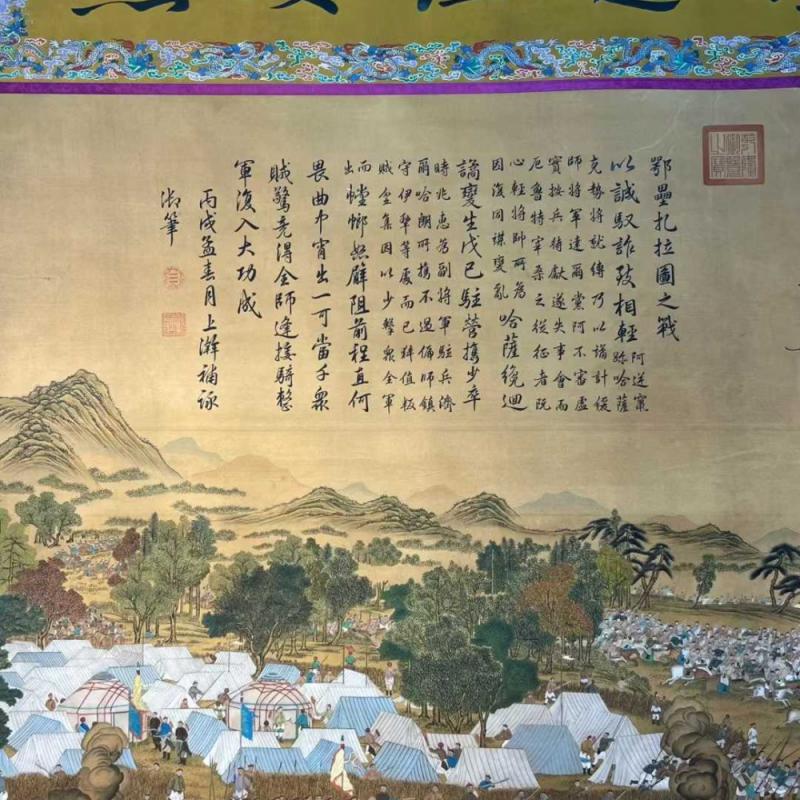 鄂壘扎拉圖之戰
以誠馭詐致相輕
阿逆竄
跡哈薩
克勢將就縛乃以譎計緩
師將軍達爾黨阿不審虛
實按兵待獻遂失事會而
厄魯特宰桑之從征者既
心輕將帥所為
因復同謀變亂
哈薩纔迴
譎變生戊巳駐營攜少卒
時兆惠為副將軍駐兵濟
爾哈朗所攜不過偏師鎮
守伊犂等處而已猝值叛
賊坌集因以少擊衆全軍
而
出
螳螂怒臂阻前程直何
畏曲巾宵出一可當千衆
賊驚竟得全師逢接騎整
軍復入大功成
丙戌孟春月上澣補詠
御筆